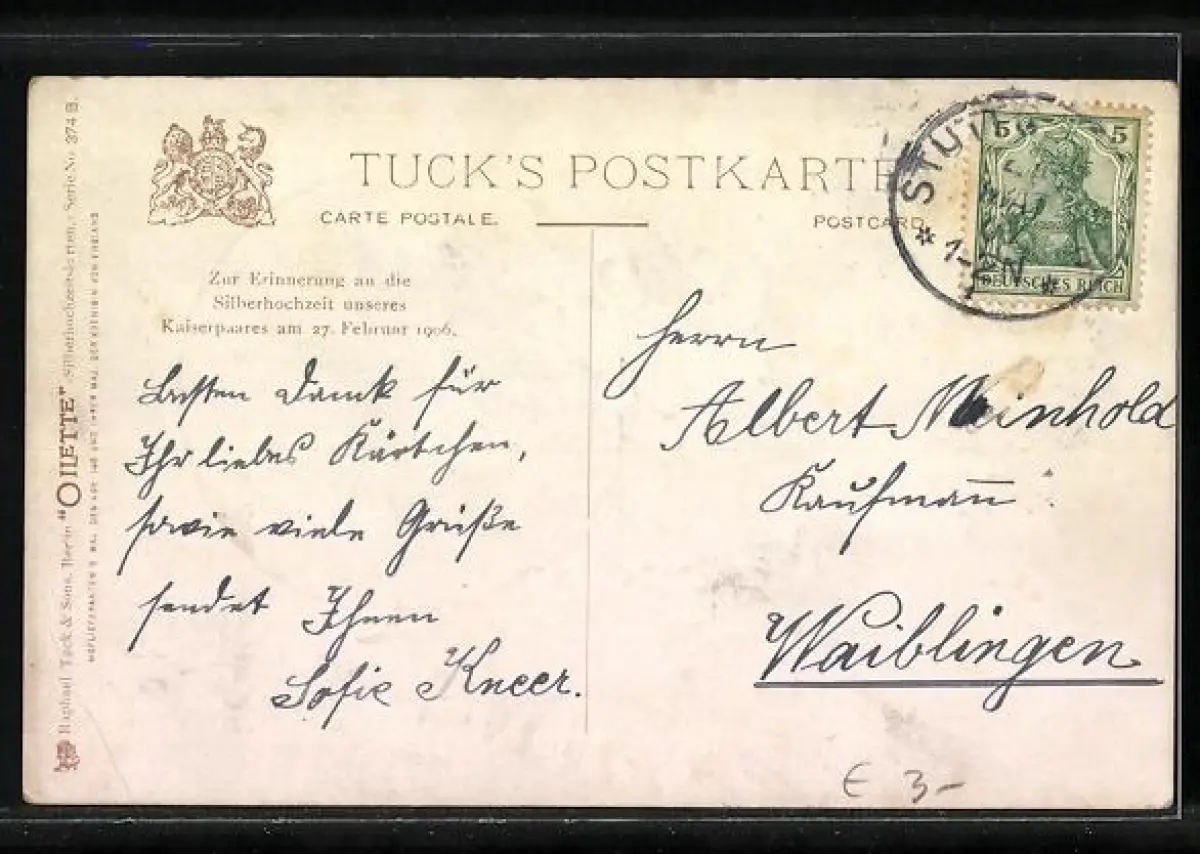 TUCK'S POSTKARTE
CARTE POSTALE.
POSTCARD.
Zur Erinnerung an die
Silberhochzeit unseres
Kaiserpaares am 27. Februar 1906.
Besten Dank für
Ihr liebes Kärtchen,
sowie viele Grüße
sendet Ihnen
Sofie Kneer.
5 5
DEUTSCHES REICH
STU
1-2N
Herrn
Albert Meinhold
Kaufmann
Waiblingen
€ 3-
Raphael Tuck & Sons, Berlin "OILETTE" Silberhochzeitskarten, Serie No. 374 B.